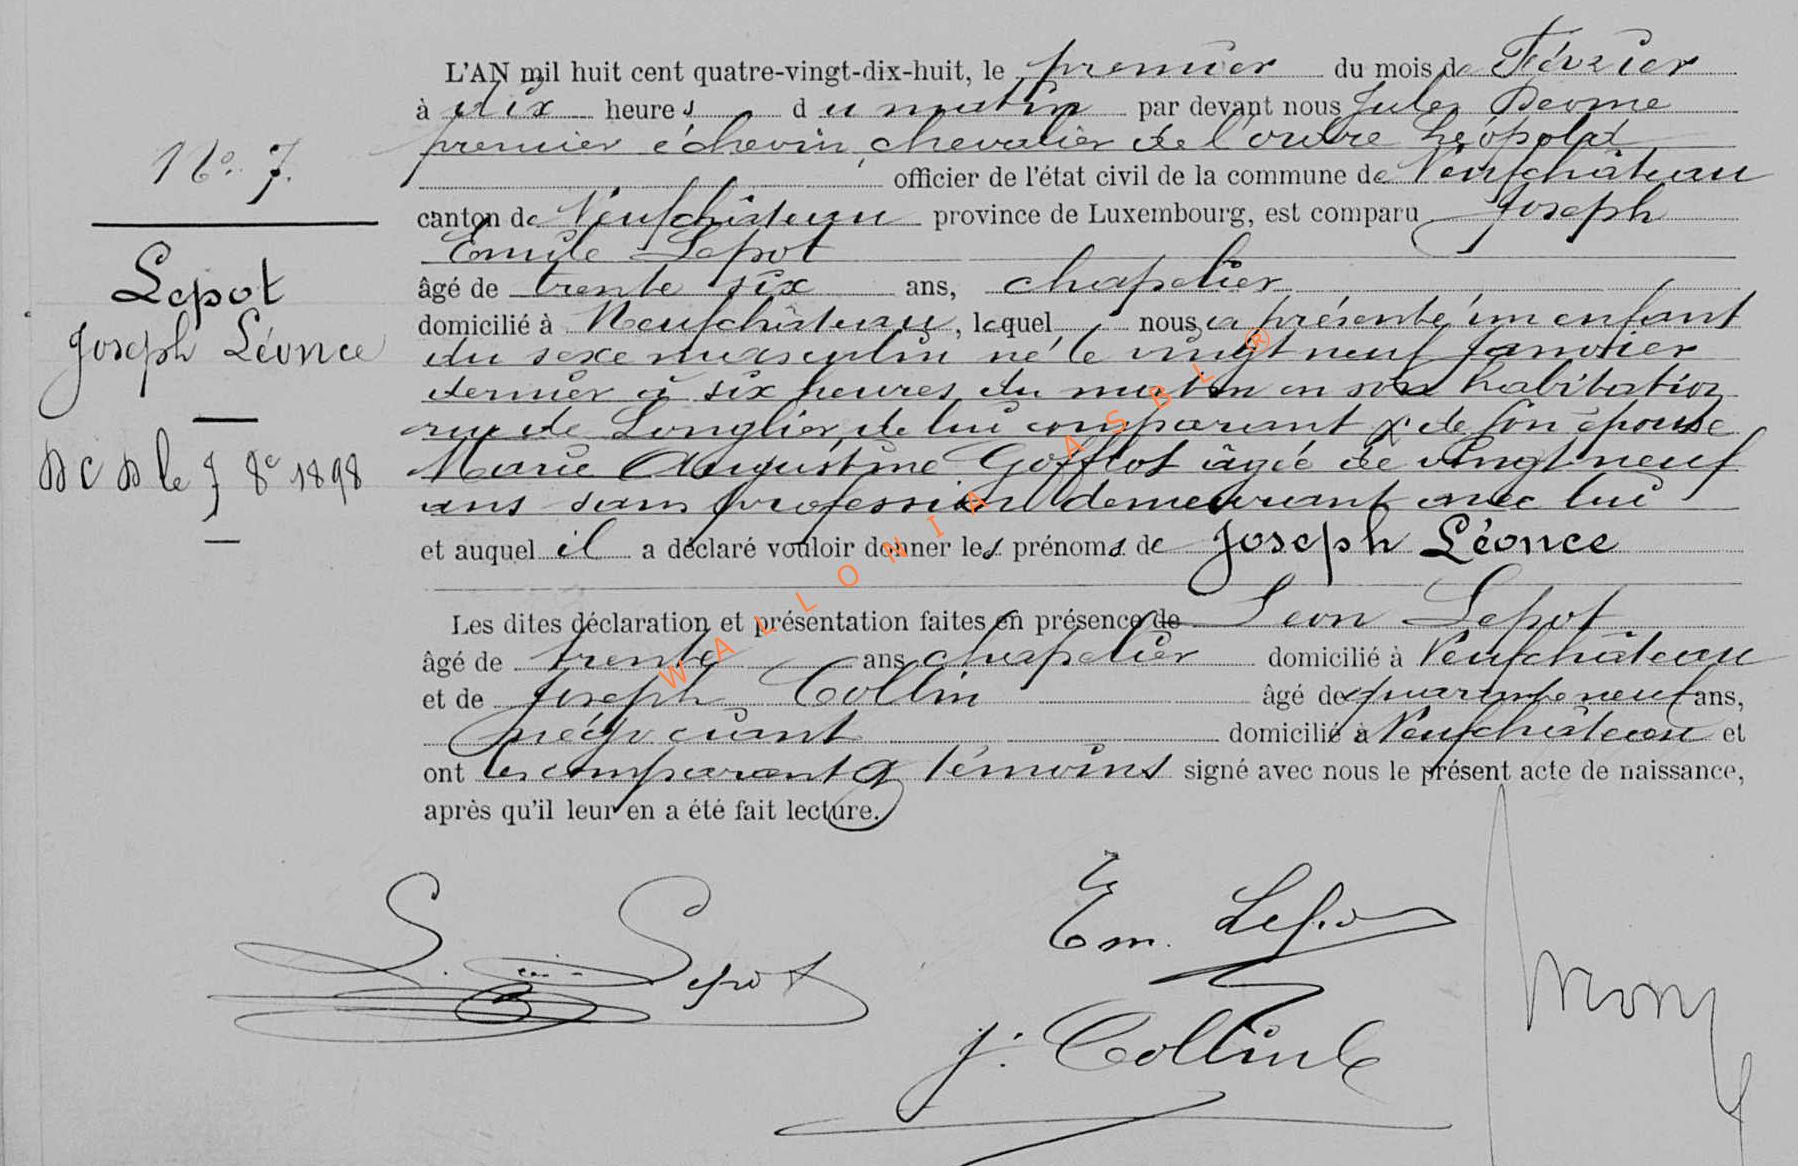 No. 7.
Lepot
Joseph Léonce
DCD le 7 8e 1898
L'AN mil huit cent quatre-vingt-dix-huit, le premier du mois de Février
à dix heures du matin par devant nous Jules
premier échevin, chevalier de l'ordre Léopold
officier de l'état civil de la commune de Neufchâteau
canton de Neufchâteau province de Luxembourg, est comparu Joseph
Emile Lepot
âgé de trente six ans, chapelier
domicilié à Neufchâteau, lequel nous a présenté un enfant
du sexe masculin né le vingt neuf Janvier
dernier à six heures du matin en son habitation
rue de Longlier, de lui comparant & de son épouse
Marie Augustine Gofflot âgée de vingt neuf
ans sans profession demeurant avec lui
et auquel il a déclaré vouloir donner les prénoms de Joseph Léonce
Les dites déclaration et présentation faites en présence de Léon Lepot
âgé de trente ans chapelier domicilié à Neufchâteau
et de Joseph Collin âgé de quarante neuf ans,
négociant domicilié à Neufchâteau et
ont les comparant & témoins signé avec nous le présent acte de naissance,
après qu'il leur en a été fait lecture.
L. Lepot
Em. Lepot
J. Collin
WALLONIA ASBL ®